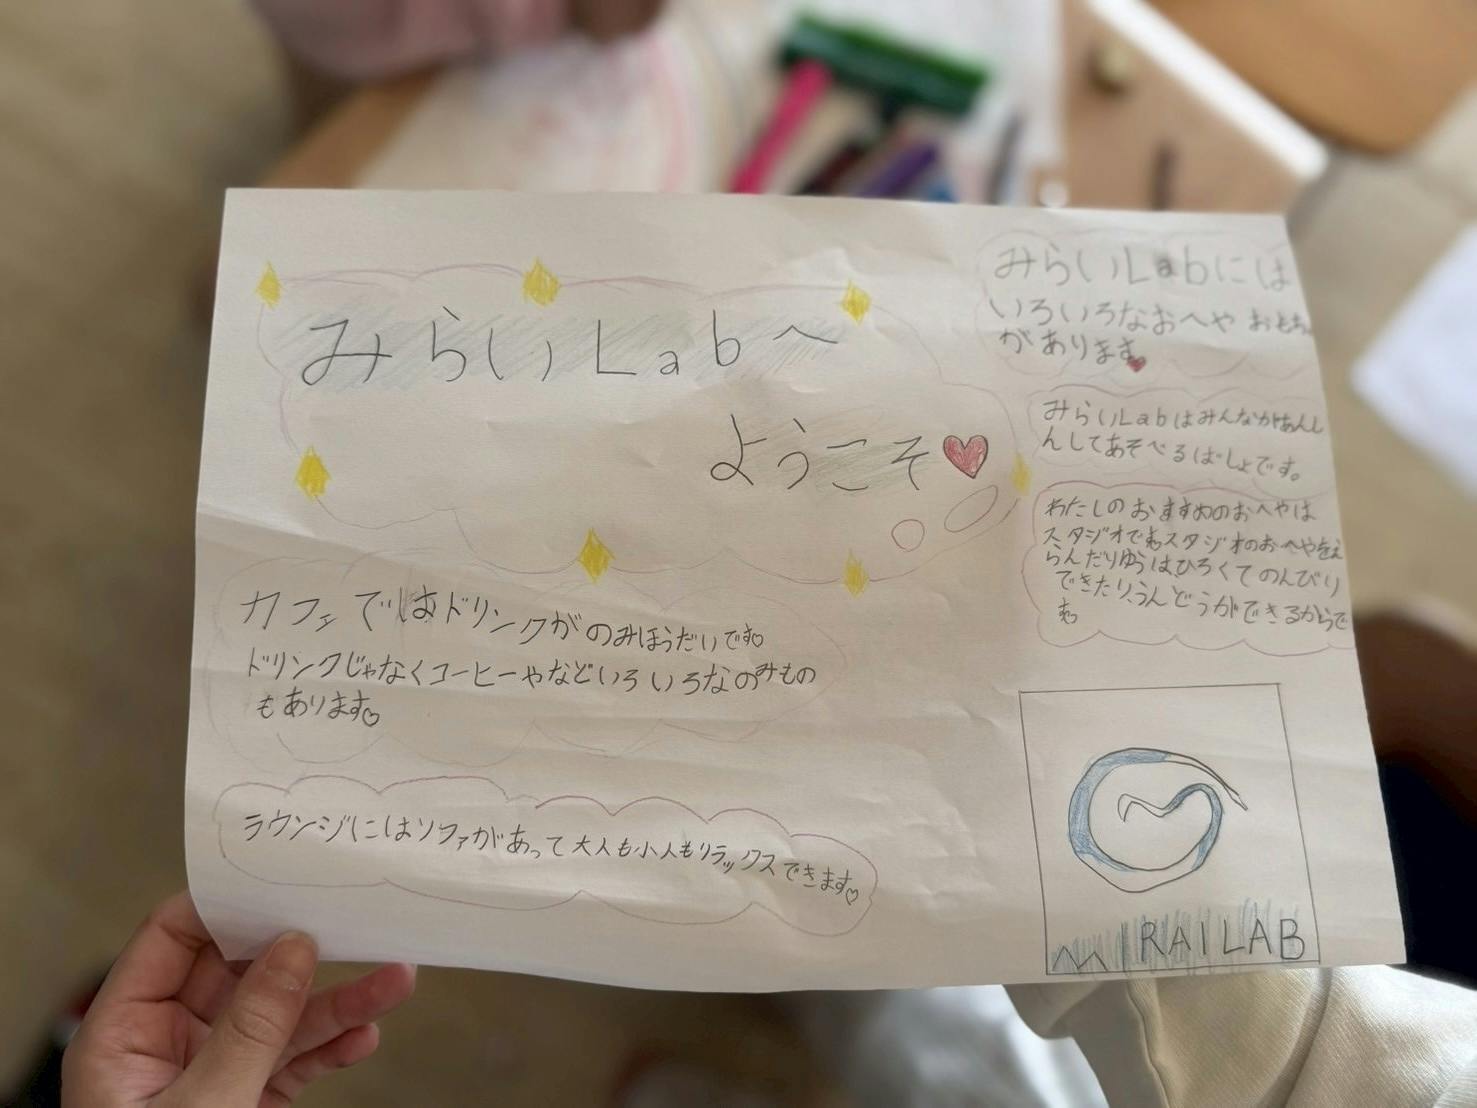 みらいLabへ
ようこそ
カフェではドリンクがのみほうだいです
ドリンクじゃなくコーヒーやなどいろいろなのみもの
もあります
ラウンジにはソファがあって大人も小人もリラックスできます
みらいLabには
いろいろなおへや おもちゃ
があります
みらいLabはみんながあんし
んしてあそべるばしょです。
わたしのおすすめのおへやは
スタジオですスタジオのおへやをえ
らんだりゆうはひろくてのんびり
できたり、うんどうができるからで
す
MIRAILAB